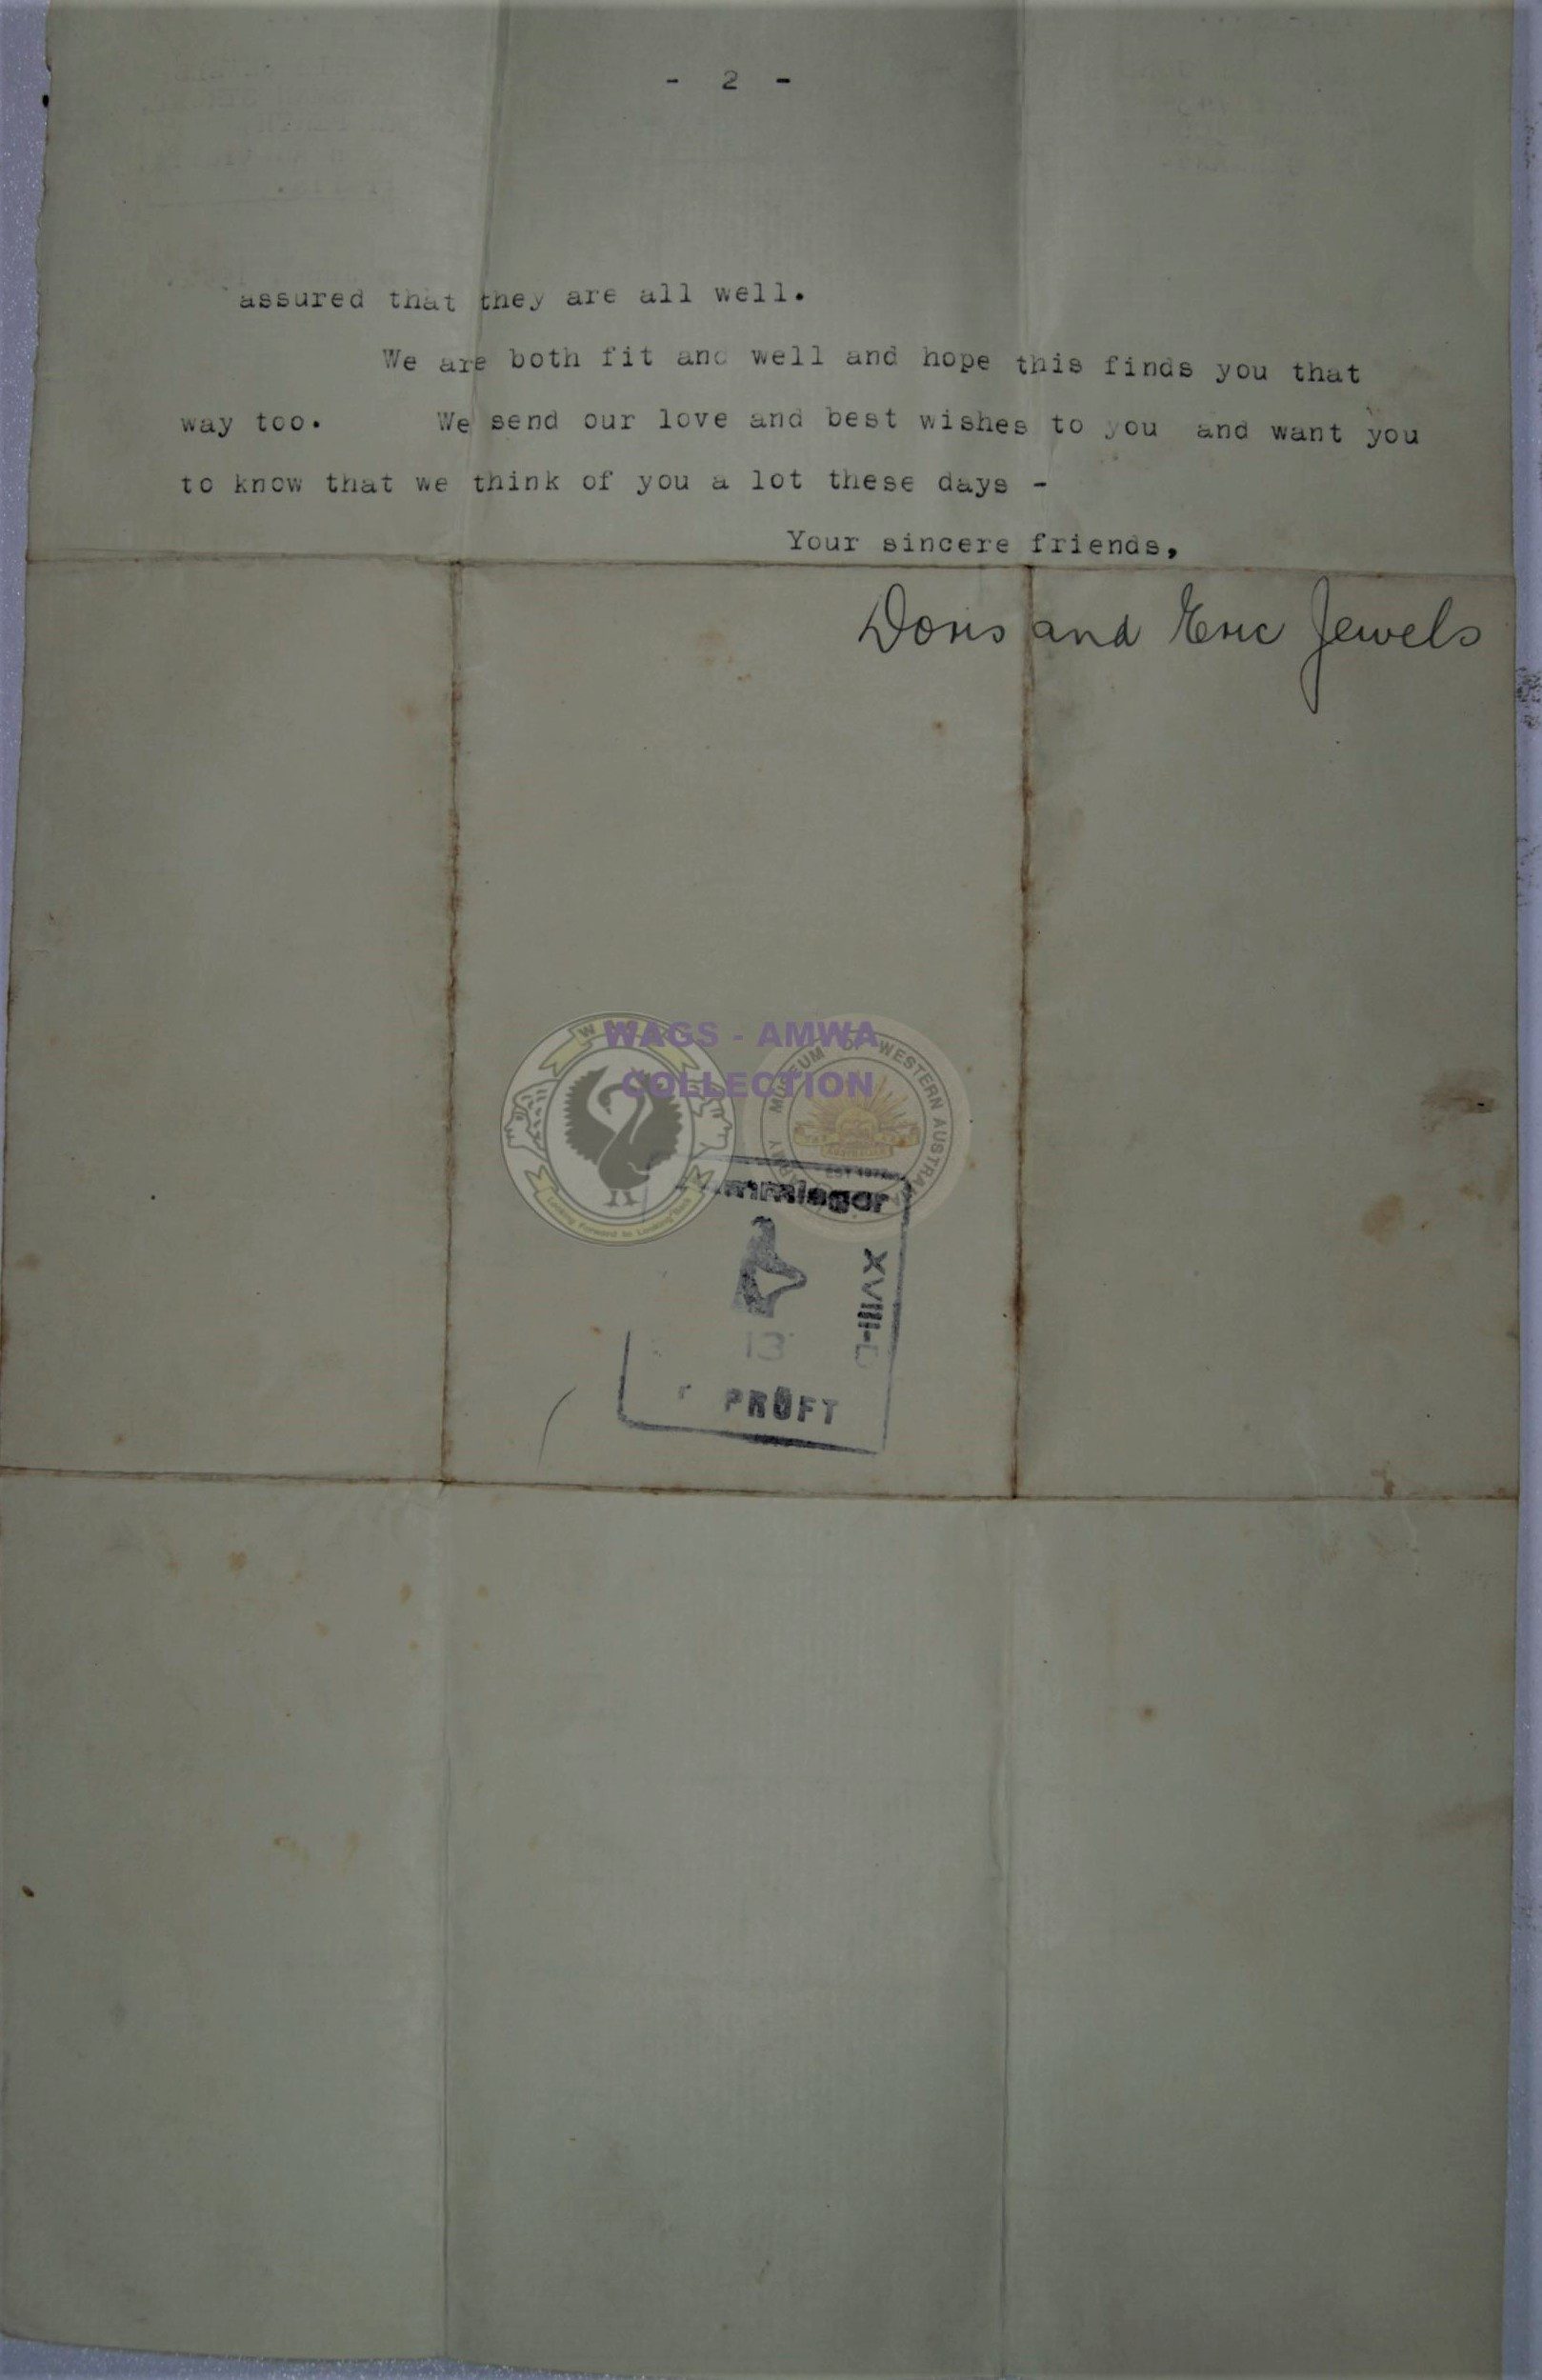 - 2 -
assured that they are all well.
We are both fit and well and hope this finds you that
way too. We send our love and best wishes to you and want you
to know that we think of you a lot these days -
Your sincere friends,
Doris and Eric Jewels
WAGS - AMWA
COLLECTION
MUSEUM OF WESTERN AUSTRALIA
Looking Forward to Looking Back
mmlager
XVIII-
13
PRÜFT